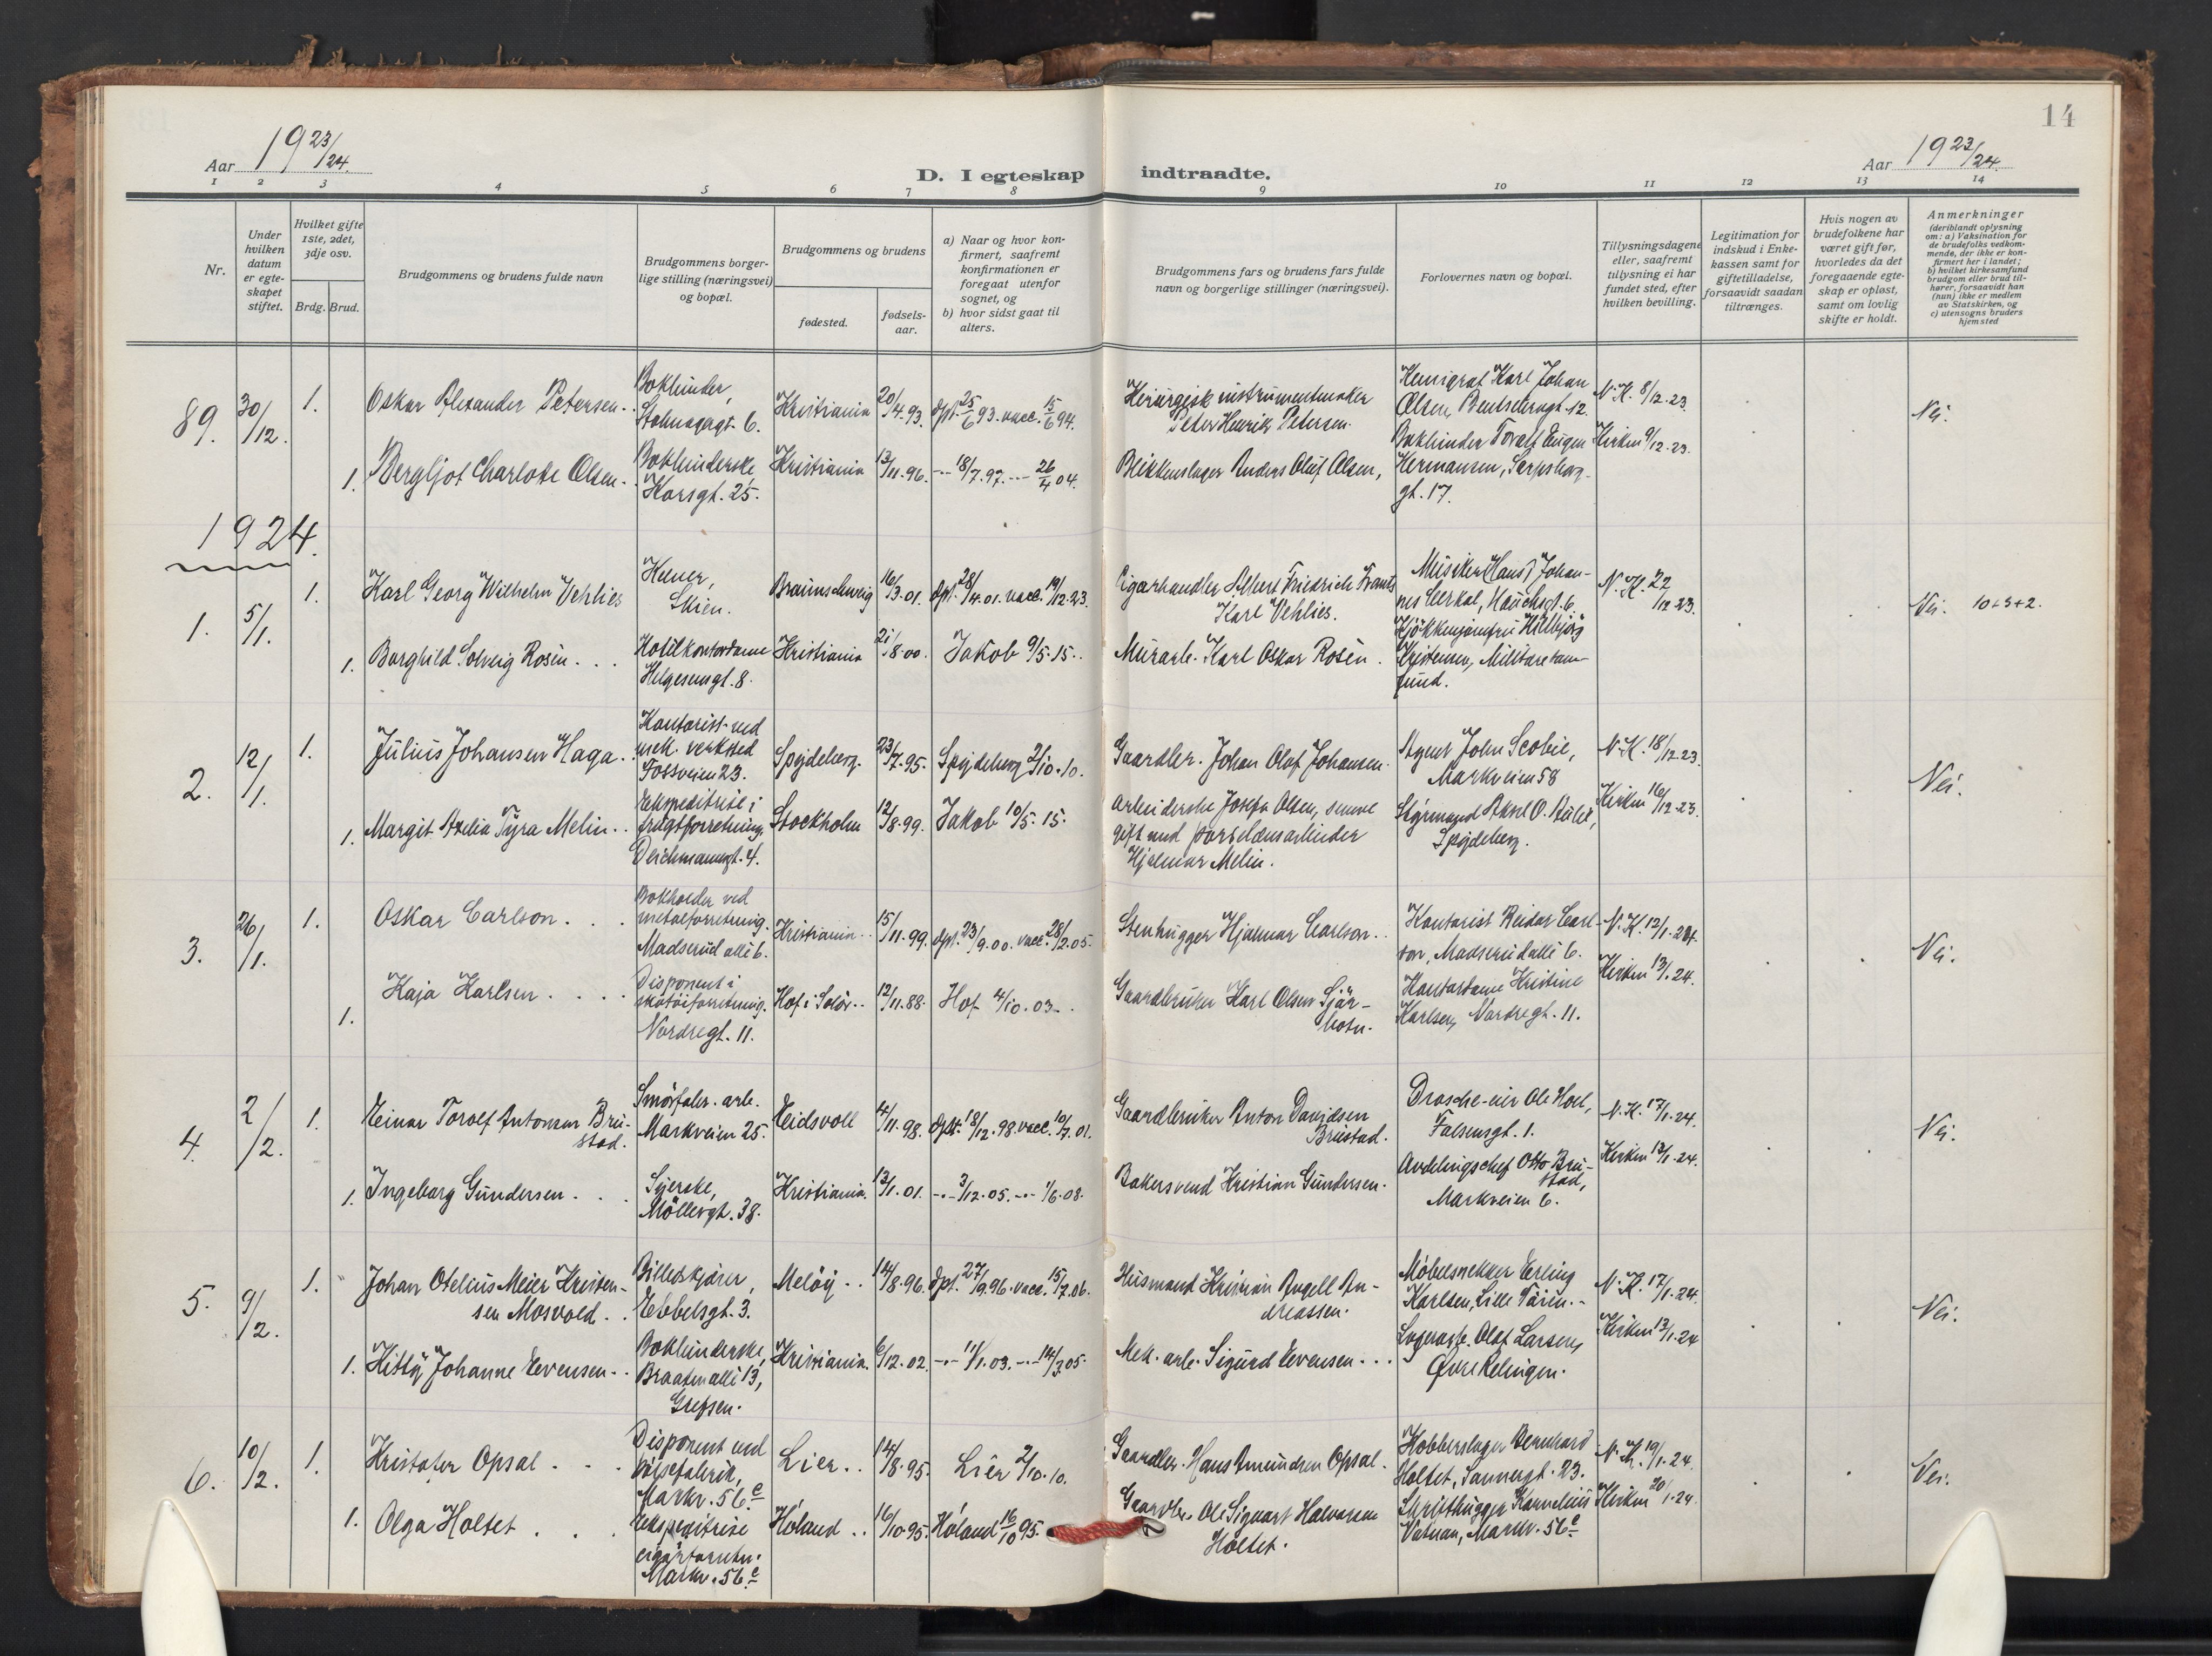 14
Aar 1923/24.
D. I egteskap indtraadte.
Aar 1923/24.
1 2 3 4 5 6 7 8 9 10 11 12 13 14
Nr.
Under hvilken datum er egteskapet stiftet.
Hvilket gifte 1ste, 2det, 3dje osv.
Brdg. Brud.
Brudgommens og brudens fulde navn
Brudgommens borgerlige stilling (næringsvei) og bopæl.
Brudgommens og brudens
fødested.
fødselsaar.
a) Naar og hvor konfirmert, saafremt konfirmationen er foregaat utenfor sognet, og
b) hvor sidst gaat til alters.
Brudgommens fars og brudens fars fulde navn og borgerlige stillinger (næringsvei).
Forlovernes navn og bopæl.
Tillysningsdagene eller, saafremt tillysning ei har fundet sted, efter hvilken bevilling.
Legitimation for indskud i Enkekassen samt for giftetilladelse, forsaavidt saadan tiltrænges.
Hvis nogen av brudefolkene har været gift før, hvorledes da det foregaaende egteskap er opløst, samt om lovlig skifte er holdt.
Anmerkninger (deriblandt oplysning om: a) Vaksination for de brudefolks vedkommende, der ikke er konfirmert her i landet; b) hvilket kirkesamfund brudgom eller brud tilhører, forsaavidt han (hun) ikke er medlem av Statskirken, og c) utensogns bruders hjemsted
89. 30/12. 1. Oskar Alexander Petersen.
Bokbinder, Stolmagergt. 6.
Kristiania 20/4.93. dpt. 25/6 93. vacc. 15/6 94.
Kirurgisk instrumentmaker Peter Henrik Petersen.
Kemigraf Karl Johan Olsen, Bentsebrugt. 12.
N. K. 8/12.23.
Nei.
1. Bergljot Charlotte Olsen.
Bokbinderske Korsgt. 25.
Kristiania 13/11.96. -- 18/7.97. -- 26/4 04.
Blikkenslager Anders Oluf Olsen,
Bokbinder Toralf Eugen Hermansen, Sarpsborggt. 17.
Kirken 9/12.23.
1924.
1. 5/1. 1. Karl Georg Wilhelm Vehlies
Kelner, Skien.
Braunschweig 16/3.01. dpt. 28/4.01. vacc. 19/12.23.
Cigarhandler Albert Friedrich Frants Karl Vehlies.
Musiker (Hans) Johannes Cerkal, Mauchsgt. 6.
N. K. 22/12.23.
Nei. 10+5+2.
1. Borghild Solveig Rosén . . .
Hotelkontordame Helgesensgt. 8.
Kristiania 21/8.00. Jakob 9/5.15.
Murarb. Karl Oskar Rosén.
Kjøkkenjomfru Hillbjørg Kristensen, Militære samfund.
2. 12/1. 1. Julius Johansen Haga.
Kontorist ved mek. verksted Fossveien 23.
Spydeberg. 23/7.95. Spydeberg 2/10.10.
Gaardbr. Johan Olaf Johansen.
Agent John Scobie, Markveien 58
N. K. 18/12.23.
Nei.
1. Margit Axelia Tyra Melin.
Ekspeditrise i frugtforretning. Deichmannsgt. 4.
Stockholm 12/8.99. Jakob 10/5.15.
Arbeiderske Josefa Olsen, senere gift med porselænsarbeider Hjalmar Melin.
Styrmand Aksel O. Stubt, Spydeberg.
Kirken 16/12.23.
3. 26/1. 1. Oskar Carlson . . .
Bokholder ved metalforretning. Madserud allé 6.
Kristiania 15/11.99. dpt. 23/9.00. vacc. 28/2.05.
Stenhugger Hjalmar Carlson.
Kontorist Reidar Carlson, Madserud allé 6.
N. K. 12/1.24.
Nei.
1. Kaja Karlsen . . . .
Disponent i skotøiforretning. Nordregt. 11.
Hof i Solør. 12/11.88. Hof 4/10.03.
Gaardbruker Karl Olsen Sjørbotn.
Kontordame Kristine Karlsen, Nordregt. 11.
Kirken 13/1.24.
4. 2/2. 1. Einar Toralf Antonsen Brustad.
Smørfabr. arb. Markveien 25.
Eidsvoll 4/11.98. dpt. 18/12.98. vacc. 10/7.01.
Gaardbruker Anton Davidsen Brustad.
Drosche-eier Ole Hoel, Falsensgt. 1.
N. K. 17/1.24.
Nei.
1. Ingeborg Gundersen . . .
Syerske, Møllergt. 38.
Kristiania. 13/1.01. -- 3/12.05. -- 1/6.08.
Bakersvend Kristian Gundersen.
Avdelingschef Otto Brustad, Markveien 6.
Kirken 13/1.24.
5. 9/2. 1. Johan Otelius Meier Kristensen Mosvold.
Billedskjærer, Ebbelsgt. 3.
Meløy 14/8.96. dpt. 27/9.96. vacc. 15/7.06.
Husmand Kristian Angell Andreassen.
Møbelsnekker Erling Karlsen, Lille Tøien.
N. K. 17/1.24.
Nei.
1. Kitty Johanne Evensen.
Bokbinderske, Braaten allé 13, Grefsen.
Kristiania. 6/12.02. -- 11/1.03. -- 14/3.05.
Mek. arb. Sigurd Evensen . . .
Lagerarb. Olaf Larsen, Øvre Rælingen.
Kirken 13/1.24
6. 10/2. 1. Kristofer Opsal . . .
Disponent ved pølsefabrik, Markv. 56 c
Lier 14/8.95. Lier 2/10.10.
Gaardbr. Hans Amundsen Opsal.
Kobberslager Bernhard Holtet, Sannergt. 23.
N. K. 19/1.24.
Nei.
1. Olga Holtet . . .
Ekspeditrise cigarforretn. Markv. 56 c
Høland 16/10.95. Høland 16/10 95.
Gaardbr. Ole Siguart Halvorsen Holtet.
Skrifthugger Kornelius Vatnan, Markv. 56 c
Kirken 20/1.24.